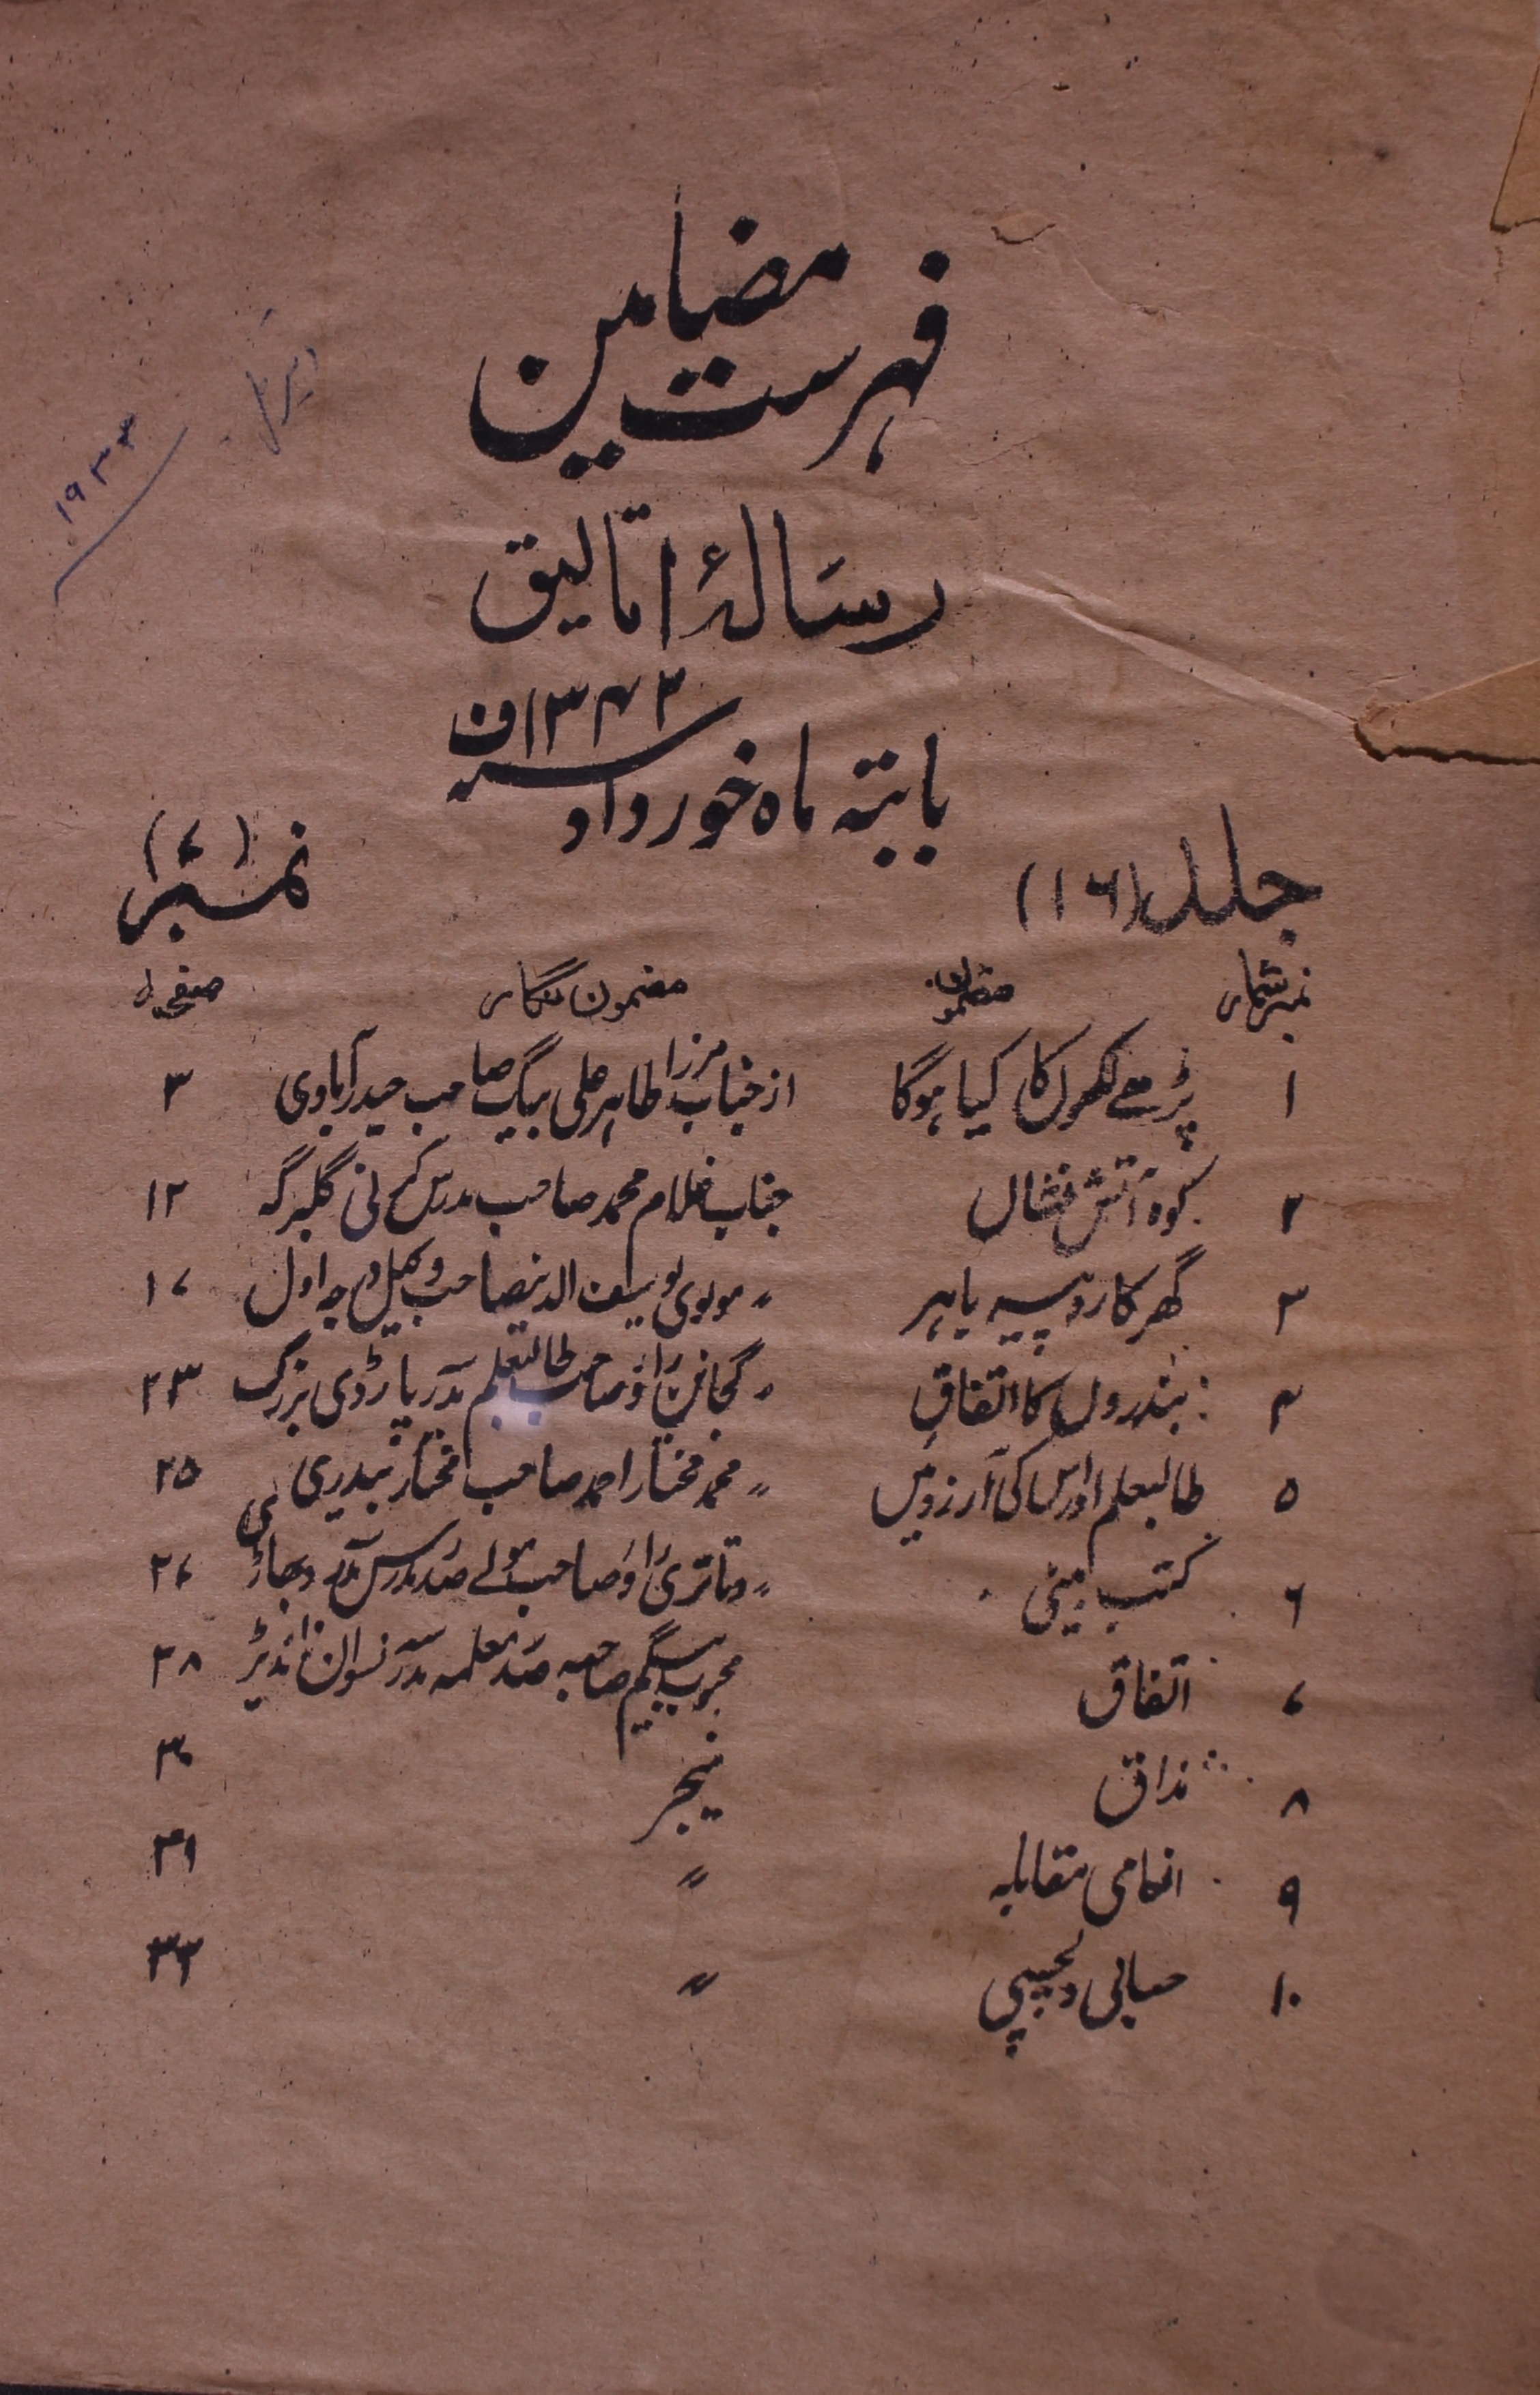 فہرست مضامین
اپریل
۱۹۳۳
رسالۂ اتالیق
بابتہ ماہ خورداد سنہ ۱۳۴۲ ف
جلد (۱۶) نمبر (۷)
نمبر شمار مضمون مضمون نگار صفحہ
۱ پڑھے لکھوں کا کیا ہوگا از جناب مرزا طاہر علی بیگ صاحب حیدرآبادی ۳
۲ کوہ آتش فشاں جناب غلام محمد صاحب مدرس گلبرگہ ۱۲
۳ گھر کا روپیہ باہر 〃 مولوی یوسف الدین صاحب وکیل درجہ اول ۱۷
۴ بندروں کا اتفاق 〃 گجانن راؤ صاحب طالبعلم مدرسہ پارڈی بزرگ ۲۳
۵ طالبعلم اور اس کی آرزوئیں 〃 محمد مختار احمد صاحب مختار بیدری ۲۵
۶ کتب بینی 〃 دتاتری راؤ صاحب صدر مدرس مدرسہ ۲۷
۷ اتفاق محبوب بیگم صاحبہ صدر معلمہ مدرسہ نسواں ناندیڑ ۲۸
۸ مذاق منیجر ۳۰
۹ انعامی مقابلہ 〃 ۳۱
۱۰ حسابی دلچسپی 〃 ۳۲